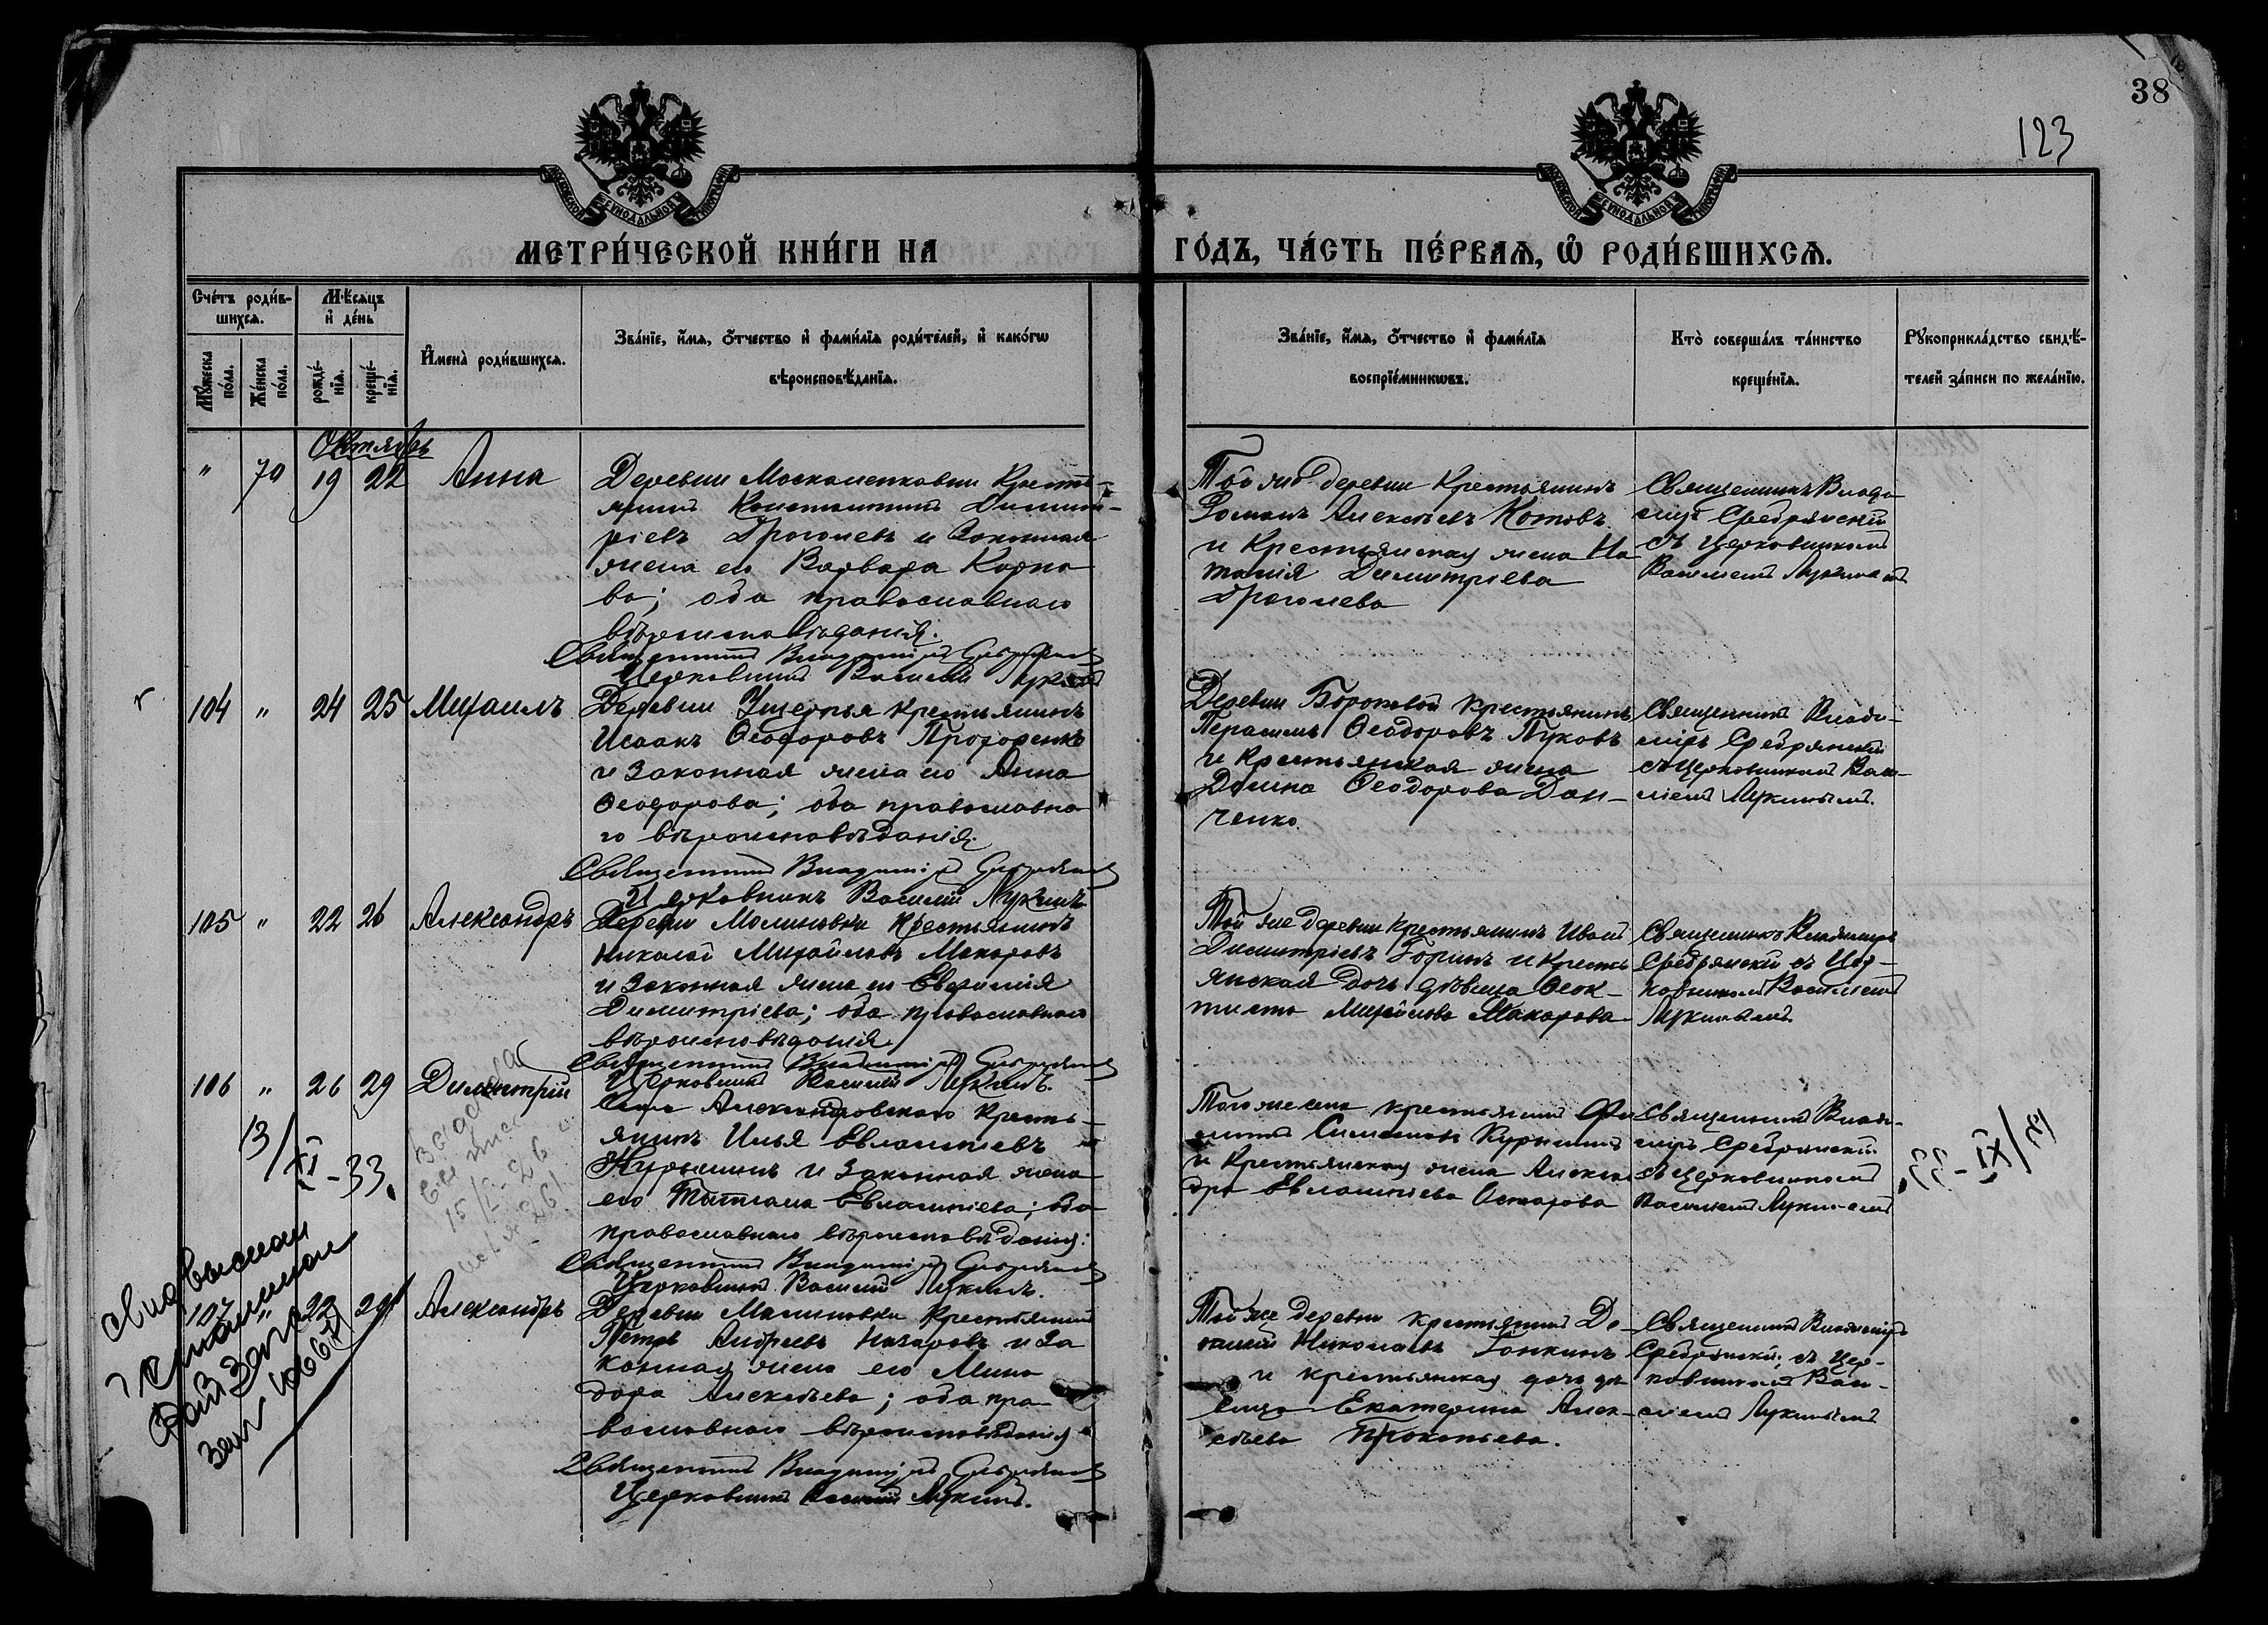 38
123
МОСКОВСКОЙ СѴНОДАЛЬНОЙ ТИПОГРАФІИ
МОСКОВСКОЙ СѴНОДАЛЬНОЙ ТИПОГРАФІИ
МЕТРИ́ЧЕСКОЙ КНИ́ГИ НА
ГО́ДЪ, ЧА́СТЬ ПЕ́РВАѦ, Ѽ РОДИ́ВШИХСѦ.
Сче́тъ роди́в-
шихсѧ.
Мѣ́сѧцъ
и҆ де́нь
Мꙋ́жеска
по́ла.
Же́нска
по́ла.
рожде́-
нїѧ.
креще́-
нїѧ.
И҆мена̀ роди́вшихсѧ.
Зва́нїе, и҆́мѧ, ѻ҆́тчество и҆ фами́лїѧ роди́телей, и҆ како́гѡ
вѣроисповѣ́данїѧ.
Зва́нїе, и҆́мѧ, ѻ҆́тчество и҆ фами́лїѧ
воспрїе́мникѡвъ.
Кто̀ соверша́лъ та́инство
креще́нїѧ.
Рꙋкоприкла́дство свидѣ́-
телей за́писи по жела́нїю.
Октябрь
" 70 19 22 Анна
Деревни Москаменковки Кресть-
янинъ Константинъ Димит-
ріевъ Дроголевъ и Законная
жена его Варвара Карпо
ва; оба православнаго
вѣроисповѣданія.
Священникъ Владиміръ Сребрянскій
Церковникъ Василій Лукинъ
Той же деревни Крестьянинъ
Романъ Алексѣевъ Котовъ
и Крестьянская жена На
талія Димитріева
Дроголева
Священникъ Влади
міръ Сребрянскій
съ Церковникомъ
Василіемъ Лукинымъ
104 " 24 25 Михаилъ
Деревни Ущерпья крестьянинъ
Исаакъ Ѳеодоровъ Прохоренко
и Законная жена его Анна
Ѳеодорова; оба православна
го вѣроисповѣданія.
Священникъ Владиміръ Сребрянскій
Церковникъ Василій Лукинъ
Деревни Боровой крестьянинъ
Герасимъ Ѳеодоровъ Пуковъ
и Крестьянская жена
Домна Ѳеодорова Дан-
ченко.
Священникъ Влади-
міръ Сребрянскій
съ Церковникомъ Васи-
ліемъ Лукинымъ.
105 " 22 26 Александръ
Деревни Малиновки Крестьянинъ
Николай Михайловъ Макаровъ
и Законная жена его Евфимія
Димитріева; оба православнаго
вѣроисповѣданія.
Священникъ Владиміръ Сребрянскій
Церковникъ Василій Лукинъ.
Той же деревни крестьянинъ Иванъ
Димитріевъ Горинъ и Кресть
янская дочь дѣвица Ѳеок-
тиста Михайлова Макарова
Священникъ Владиміръ
Сребрянскій съ Цер-
ковникомъ Василіемъ
Лукинымъ.
106 " 26 29 Димитрій
Села Александровскаго Кресть-
янинъ Илья Евлампіевъ
Журынинъ и Законная жена
его Татіана Евлампіева; оба
православнаго вѣроисповѣданія:
Священникъ Владиміръ Сребрянскій
Церковникъ Василій Лукинъ.
Того же села крестьянинъ
Симеоновъ Курынинъ
и Крестьянская жена Алексан
дра Евлампіева Остарова
Священникъ Влади-
міръ Сребрянскій
съ Церковникомъ
Василіемъ Лукинымъ
13/XI-33.
13/XI-33.
15/I-26
107 " 22 29 Александръ
Деревни Малиновки Крестьянинъ
Петръ Андреевъ Назаровъ и За
конная жена его Мино
дора Алексѣева; оба пра-
вославнаго вѣроисповѣданія
Священникъ Владиміръ Сребрянскій
Церковникъ Василій Лукинъ.
Той же деревни крестьянинъ
Николаевъ Гонкинъ
и крестьянская дочь дѣ
вица Екатерина Алек-
сѣева Прокопьева.
Священникъ Владиміръ
Сребрянскій, съ Цер-
ковникомъ Васи-
ліемъ Лукинымъ